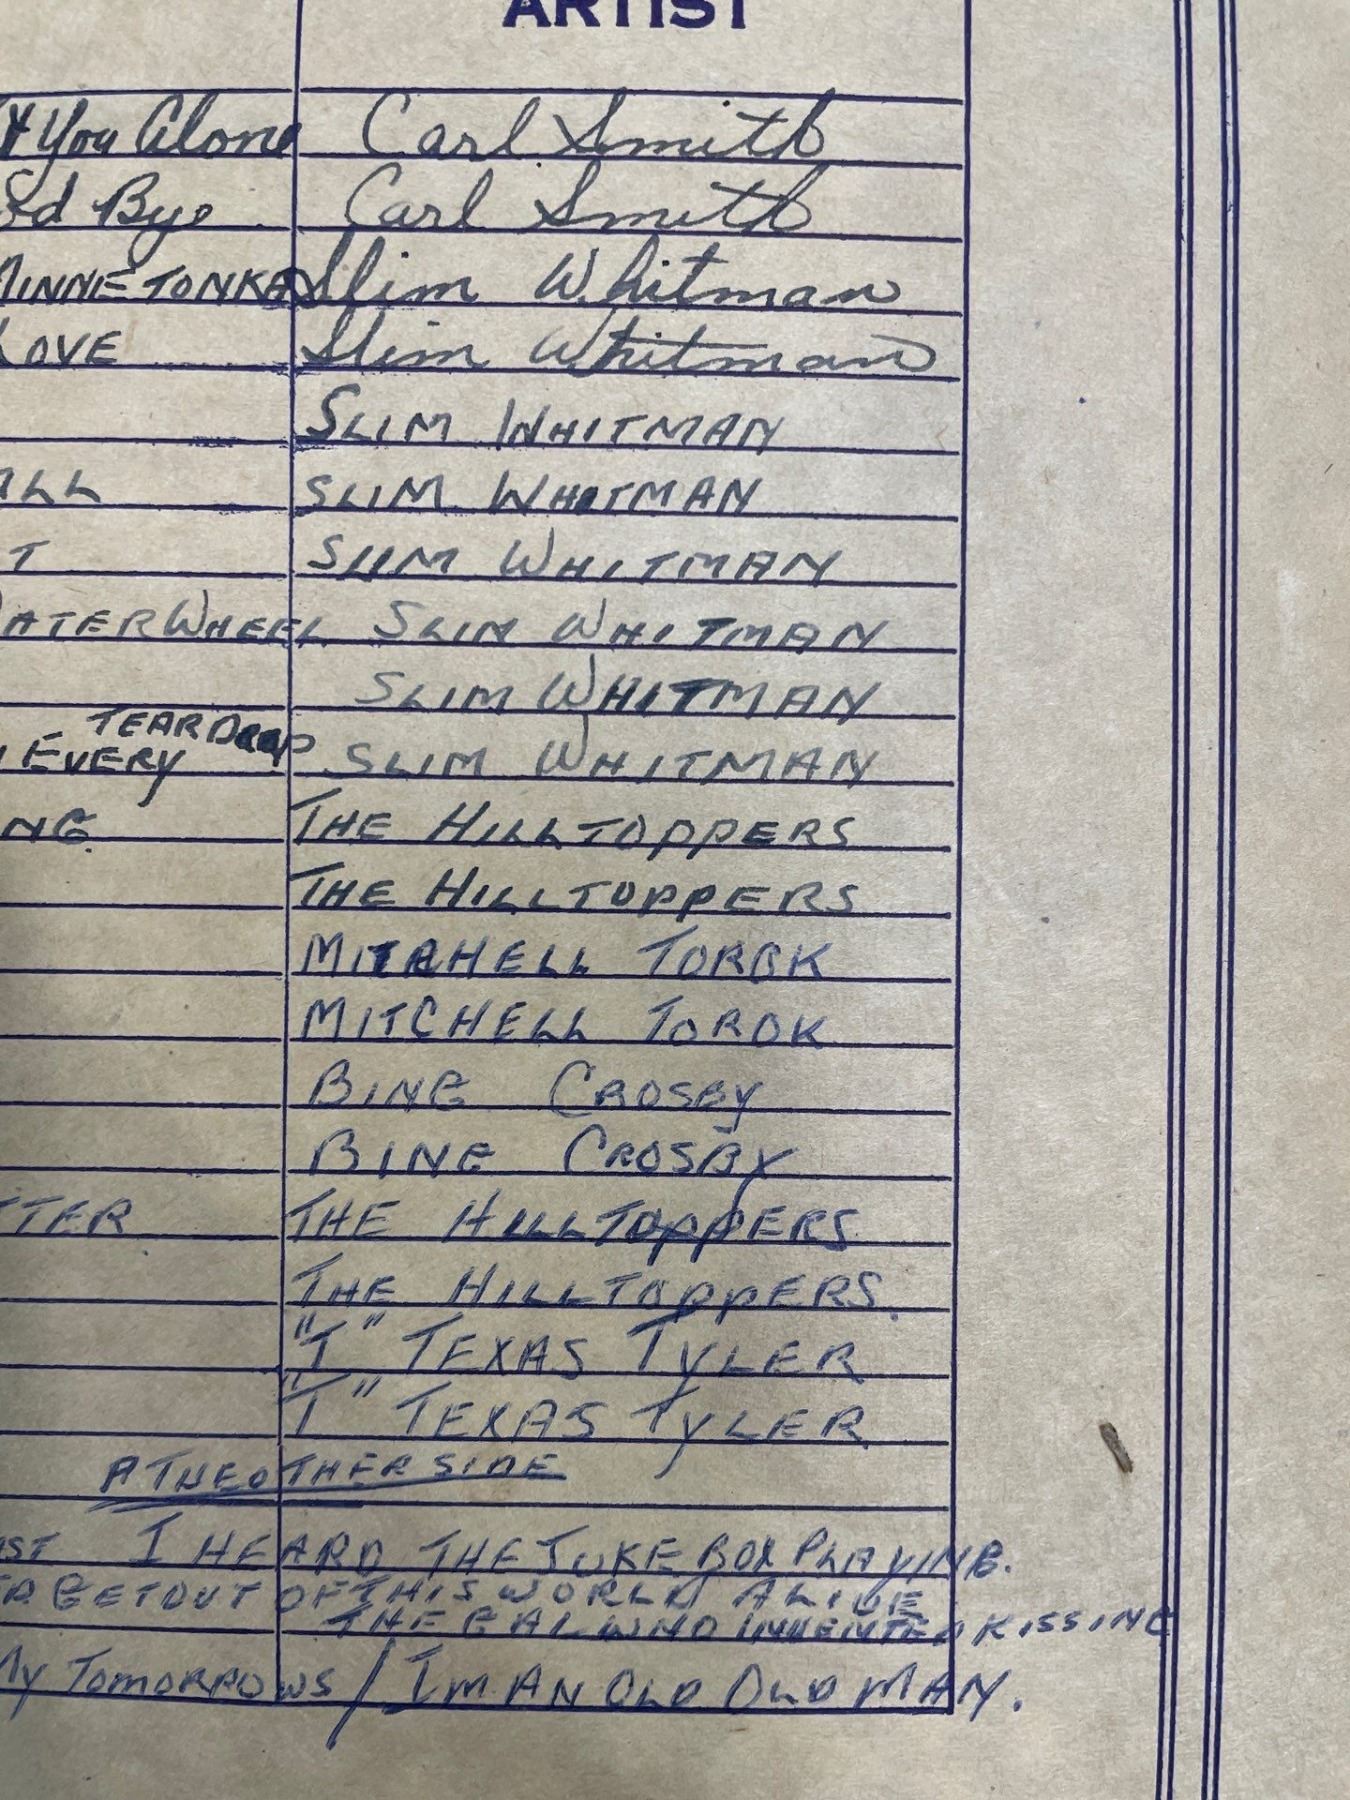 ARTIST
You Alone Carl Smith
Bye Carl Smith
MINNETONKA Slim Whitman
LOVE Slim Whitman
SLIM WHITMAN
ALL SLIM WHITMAN
T SLIM WHITMAN
WATERWHEEL SLIM WHITMAN
SLIM WHITMAN
TEARDROP
EVERY SLIM WHITMAN
NG. THE HILLTOPPERS
THE HILLTOPPERS
MITCHELL TOROK
MITCHELL TOROK
BING CROSBY
BING CROSBY
TTER THE HILLTOPPERS
THE HILLTOPPERS.
"T" TEXAS TYLER
"T" TEXAS TYLER
THE OTHER SIDE
ST I HEARD THE JUKE BOX PLAYING.
GET OUT OF THIS WORLD ALIVE
THE GAL WHO INVENTED KISSING
MY TOMORROWS / IM AN OLD OLD MAN.